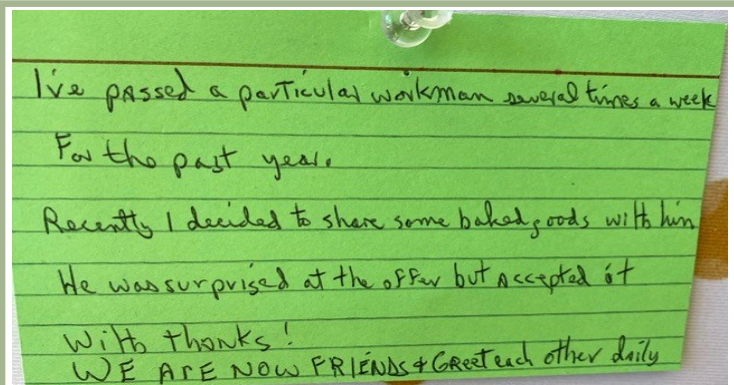 I've passed a particular workman several times a week
For the past year.
Recently I decided to share some baked goods with him
He was surprised at the offer but accepted it
With thanks!
WE ARE NOW FRIENDS & Greet each other daily